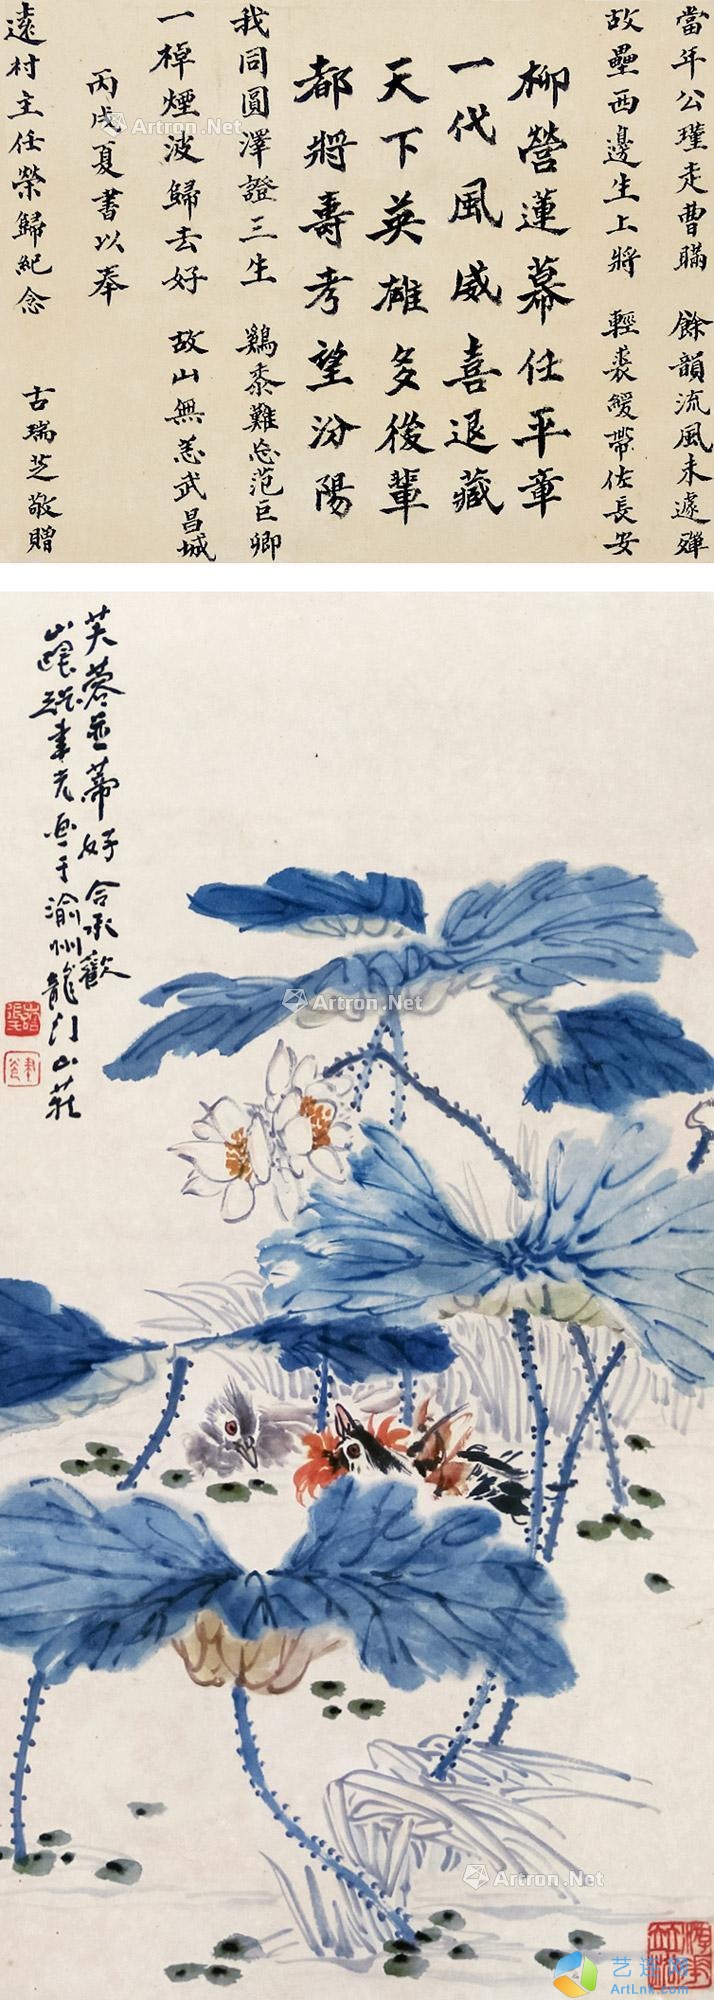 當年公瑾走曹瞞 餘韻流風未遽殫
故壘西邊生上將 輕裘緩帶佐長安
柳營蓮幕任平章
一代風威喜退藏
天下英雄多後輩
都將壽考望汾陽
我同圓澤證三生 鷄黍難忘范巨卿
一棹煙波歸去好 故山無恙武昌城
丙戌夏書以奉
遠村主任榮歸紀念 古瑞芝敬贈
芙蓉並蒂好合承歡
山陰張聿光画于渝州龍门山莊
Artron.Net
Artron.Net
Artron.Net
Artron.Net
艺连网
ArtLnk.com